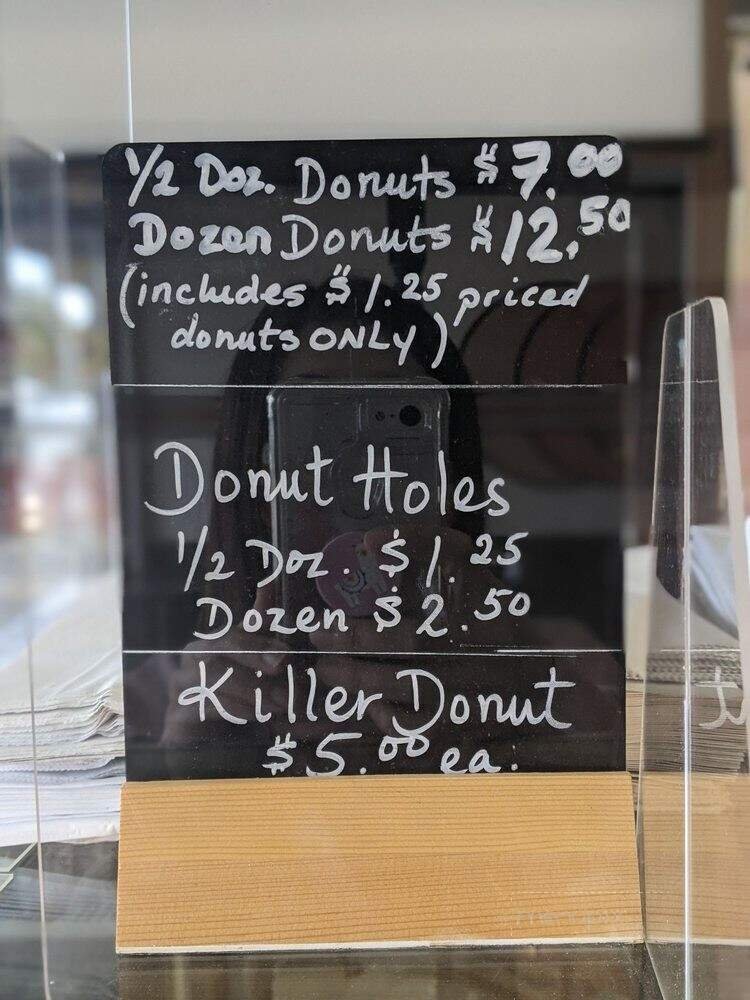 1/2 Doz. Donuts $7.00
Dozen Donuts $12.50
(includes $1.25 priced
donuts ONLY)
Donut Holes
1/2 Doz. $1.25
Dozen $2.50
Killer Donut
$5.00 ea.